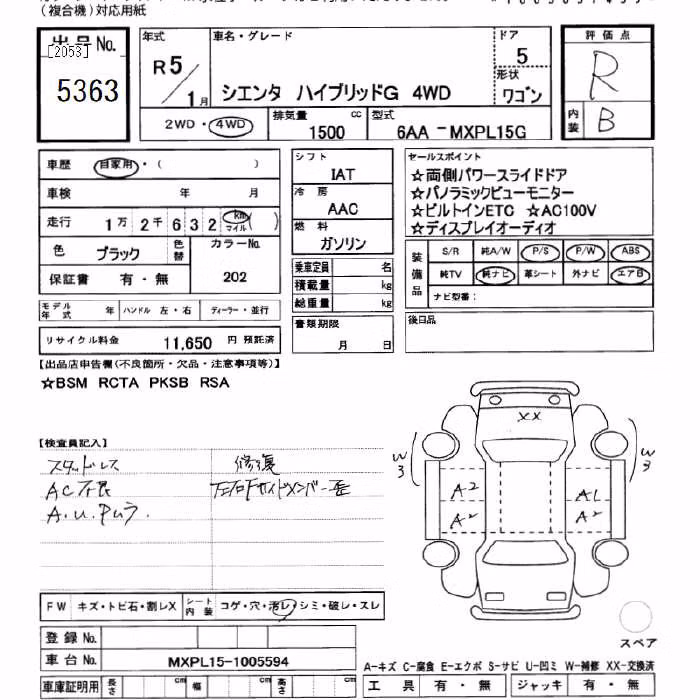 (複合機)対応用紙
出品No.
[2053]
5363
年式
R5/1月
車名・グレード
シエンタ ハイブリッドG 4WD
ドア
5
形状
ワゴン
評価点
R
内装
B
2WD・4WD
排気量
1500 cc
型式
6AA-MXPL15G
車歴 自家用・( )
車検 年 月
走行 1万 2千 6 3 2 km マイル ( )
色 ブラック 色替
カラーNo.
202
保証書 有・無
シフト
IAT
冷房
AAC
燃料
ガソリン
乗車定員 名
積載量 kg
総重量 kg
書類期限
月 日
セールスポイント
☆両側パワースライドドア
☆パノラミックビューモニター
☆ビルトインETC ☆AC100V
☆ディスプレイオーディオ
装備品
S/R 純A/W P/S P/W ABS
純TV 純ナビ 革シート 外ナビ エアB
ナビ型番:
後日品
モデル年式 年 ハンドル 左・右 ディーラー・並行
リサイクル料金 11,650 円 預託済
【出品店申告欄(不良箇所・欠品・注意事項等)】
☆BSM RCTA PKSB RSA
【検査員記入】
スタッドレス
修復
AC不良
A.U.Pムラ.
XX
W3
W3
A2
A2
A1
A2
FW キズ・トビ石・割レX
シート内装 コゲ・穴・汚レ・シミ・破レ・スレ
登録No.
車台No. MXPL15-1005594
車庫証明用 長さ cm 幅 cm 高さ cm
スペア
A-キズ C-腐食 E-エクボ S-サビ U-凹ミ W-補修 XX-交換済
工具 有・無 ジャッキ 有・無